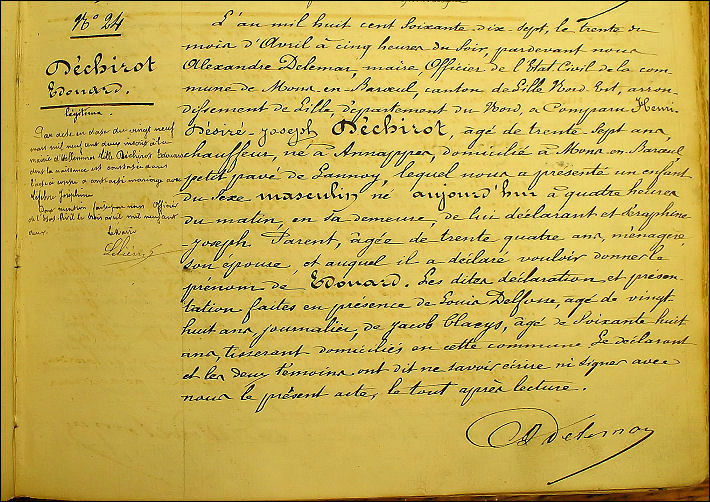 N° 24
Déchirot
Edouard.
légitime.
Par acte en date du vingt neuf
mars mil neuf cent deux inscrit à la
mairie d'Hellemmes-Lille Déchirot Edouard
dont la naissance est constatée dans
l'acte ci-contre a contracté mariage avec
Joséphine
Pour mention faite par nous Officier
de l'Etat Civil le trois avril mil neuf cent
deux.
Le Maire
L'an mil huit cent soixante-dix-sept, le trente du
mois d'Avril à cinq heures du soir, pardevant nous
Alexandre Delemar, maire Officier de l'Etat Civil de la com-
mune de Mons-en-Barœul, canton de Lille Nord-Est, arron-
dissement de Lille, département du Nord, a comparu Henri-
Désiré-Joseph Déchirot, âgé de trente-sept ans,
chauffeur, né à Annappes, domicilié à Mons-en-Barœul,
petit pavé de Lannoy, lequel nous a présenté un enfant
du sexe masculin né aujourd'hui à quatre heures
du matin, en sa demeure, de lui déclarant et Séraphine
Joseph Parent, âgée de trente quatre ans, ménagère,
son épouse, et auquel il a déclaré vouloir donner le
prénom de Edouard. Les dites déclaration et présen-
tation faites en présence de Louis age de vingt
huit ans, journalier, de Jacob Claeys, âgé de soixante huit
ans, tisserant domiciliés en cette commune Le déclarant
et les deux témoins ont dit ne savoir écrire ni signer avec
nous le présent acte, le tout après lecture.